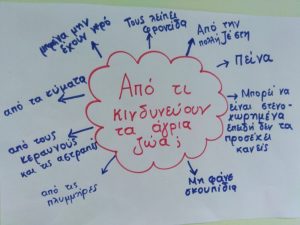 Από τι
κινδυνεύουν
τα άγρια
ζώα;
μπορεί να μην
έχουν νερό
Τους λείπει
φροντίδα
Από την
πολλή ζέστη
Πείνα
Μπορεί να
είναι στενο-
χωρημένα
επειδή δεν τα
προσέχει
κανείς
Μη φάνε
σκουπίδια
από τις
πλυμμήρες
από τους
κεραυνούς
και τις αστραπές
από τα κύματα